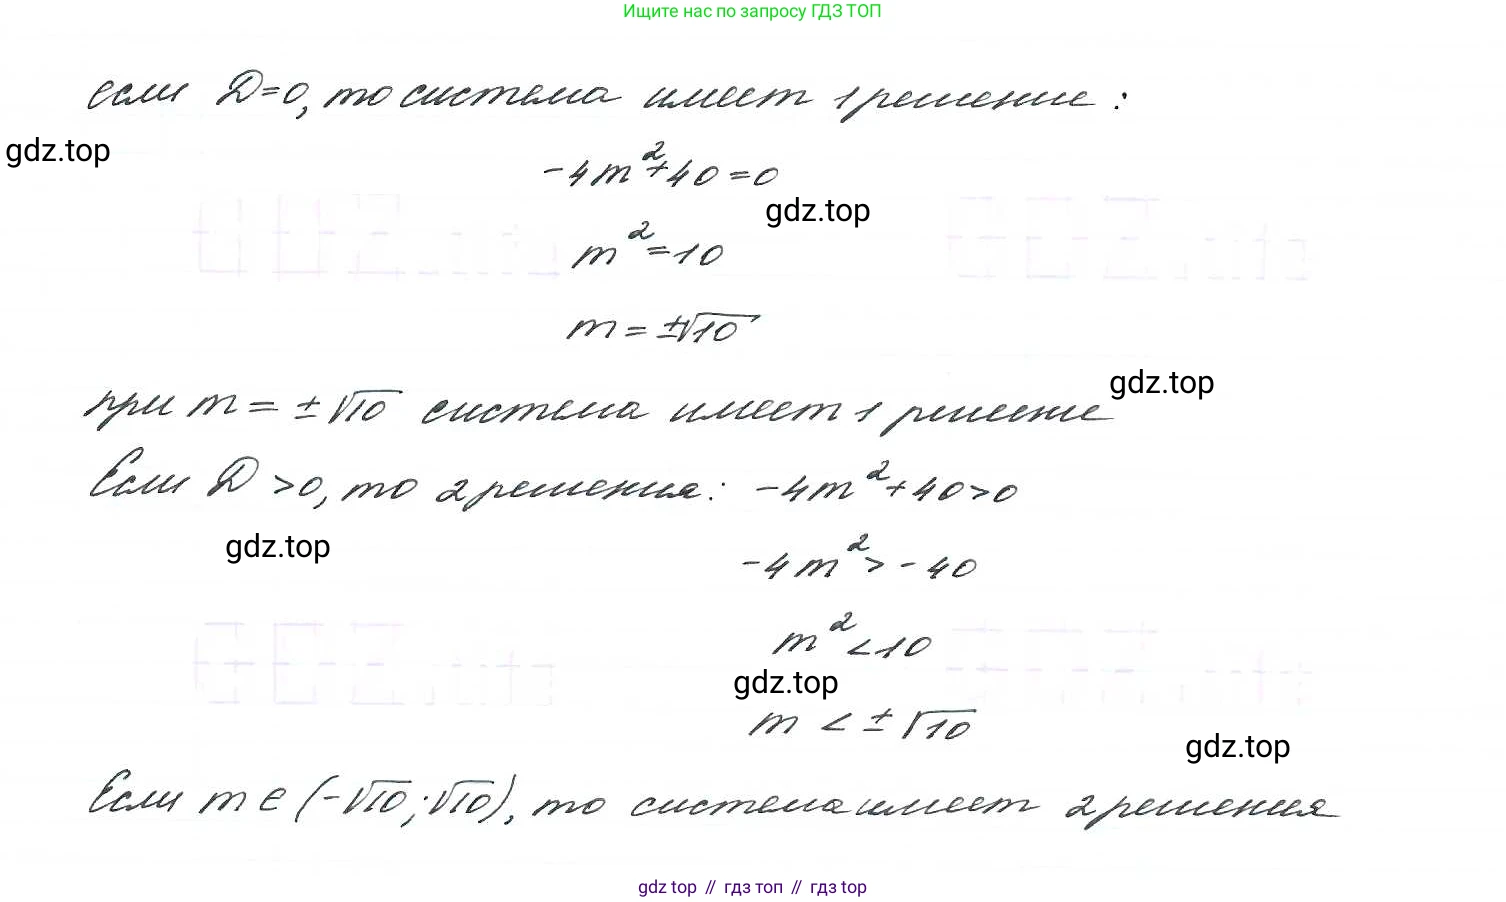 Ищите нас по запросу ГДЗ ТОП
если D=0, то система имеет 1 решение:
gdz.top
-4m²+40=0
gdz.top
m²=10
m=±√10
gdz.top
при m=±√10 система имеет 1 решение
Если D>0, то 2 решения: -4m²+40>0
gdz.top
-4m²>-40
m²<10
gdz.top
m<±√10
gdz.top
Если m∈(-√10;√10), то система имеет 2 решения
gdz top // гдз топ // гдз top